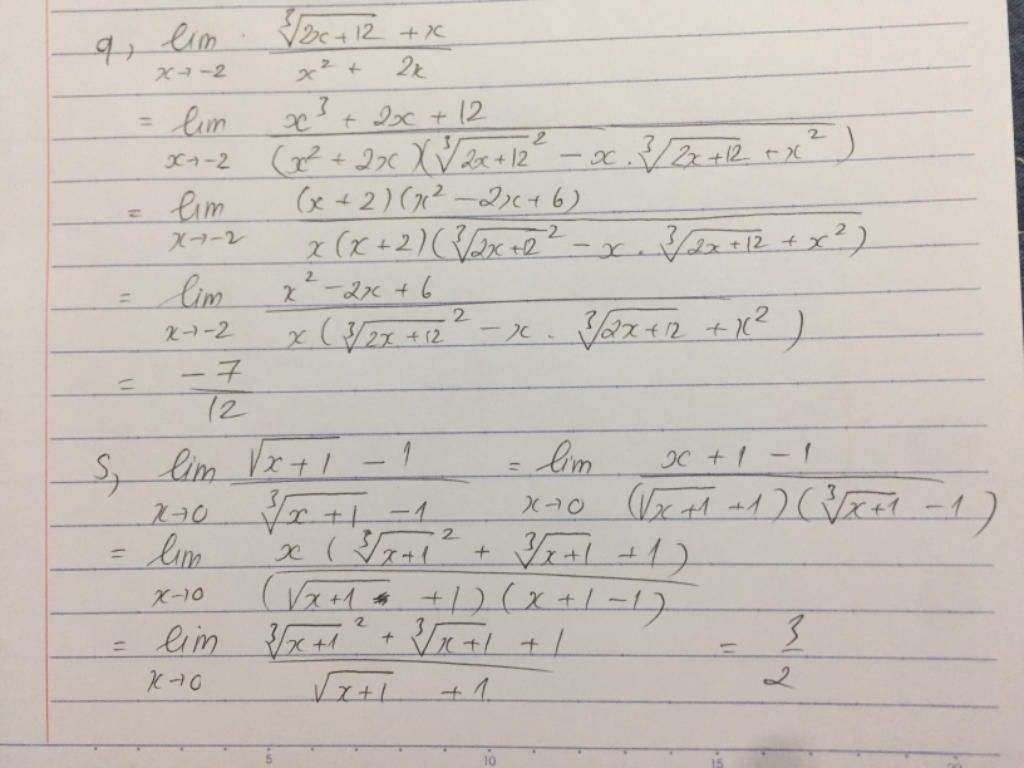 q, lim x→-2 (∛(2x+12) + x)/(x² + 2x)
= lim x→-2 (x³ + 2x + 12)/((x² + 2x)(∛(2x+12)² - x . ∛(2x+12) + x²))
= lim x→-2 ((x + 2)(x² - 2x + 6))/(x(x + 2)(∛(2x+12)² - x . ∛(2x+12) + x²))
= lim x→-2 (x² - 2x + 6)/(x(∛(2x+12)² - x . ∛(2x+12) + x²))
= -7/12
S, lim x→0 (√(x+1) - 1)/(∛(x+1) - 1) = lim x→0 (x + 1 - 1)/((√(x+1) + 1)(∛(x+1) - 1))
= lim x→0 (x(∛(x+1)² + ∛(x+1) + 1))/((√(x+1) + 1)(x + 1 - 1))
= lim x→0 (∛(x+1)² + ∛(x+1) + 1)/(√(x+1) + 1) = 3/2
5 10 15 20